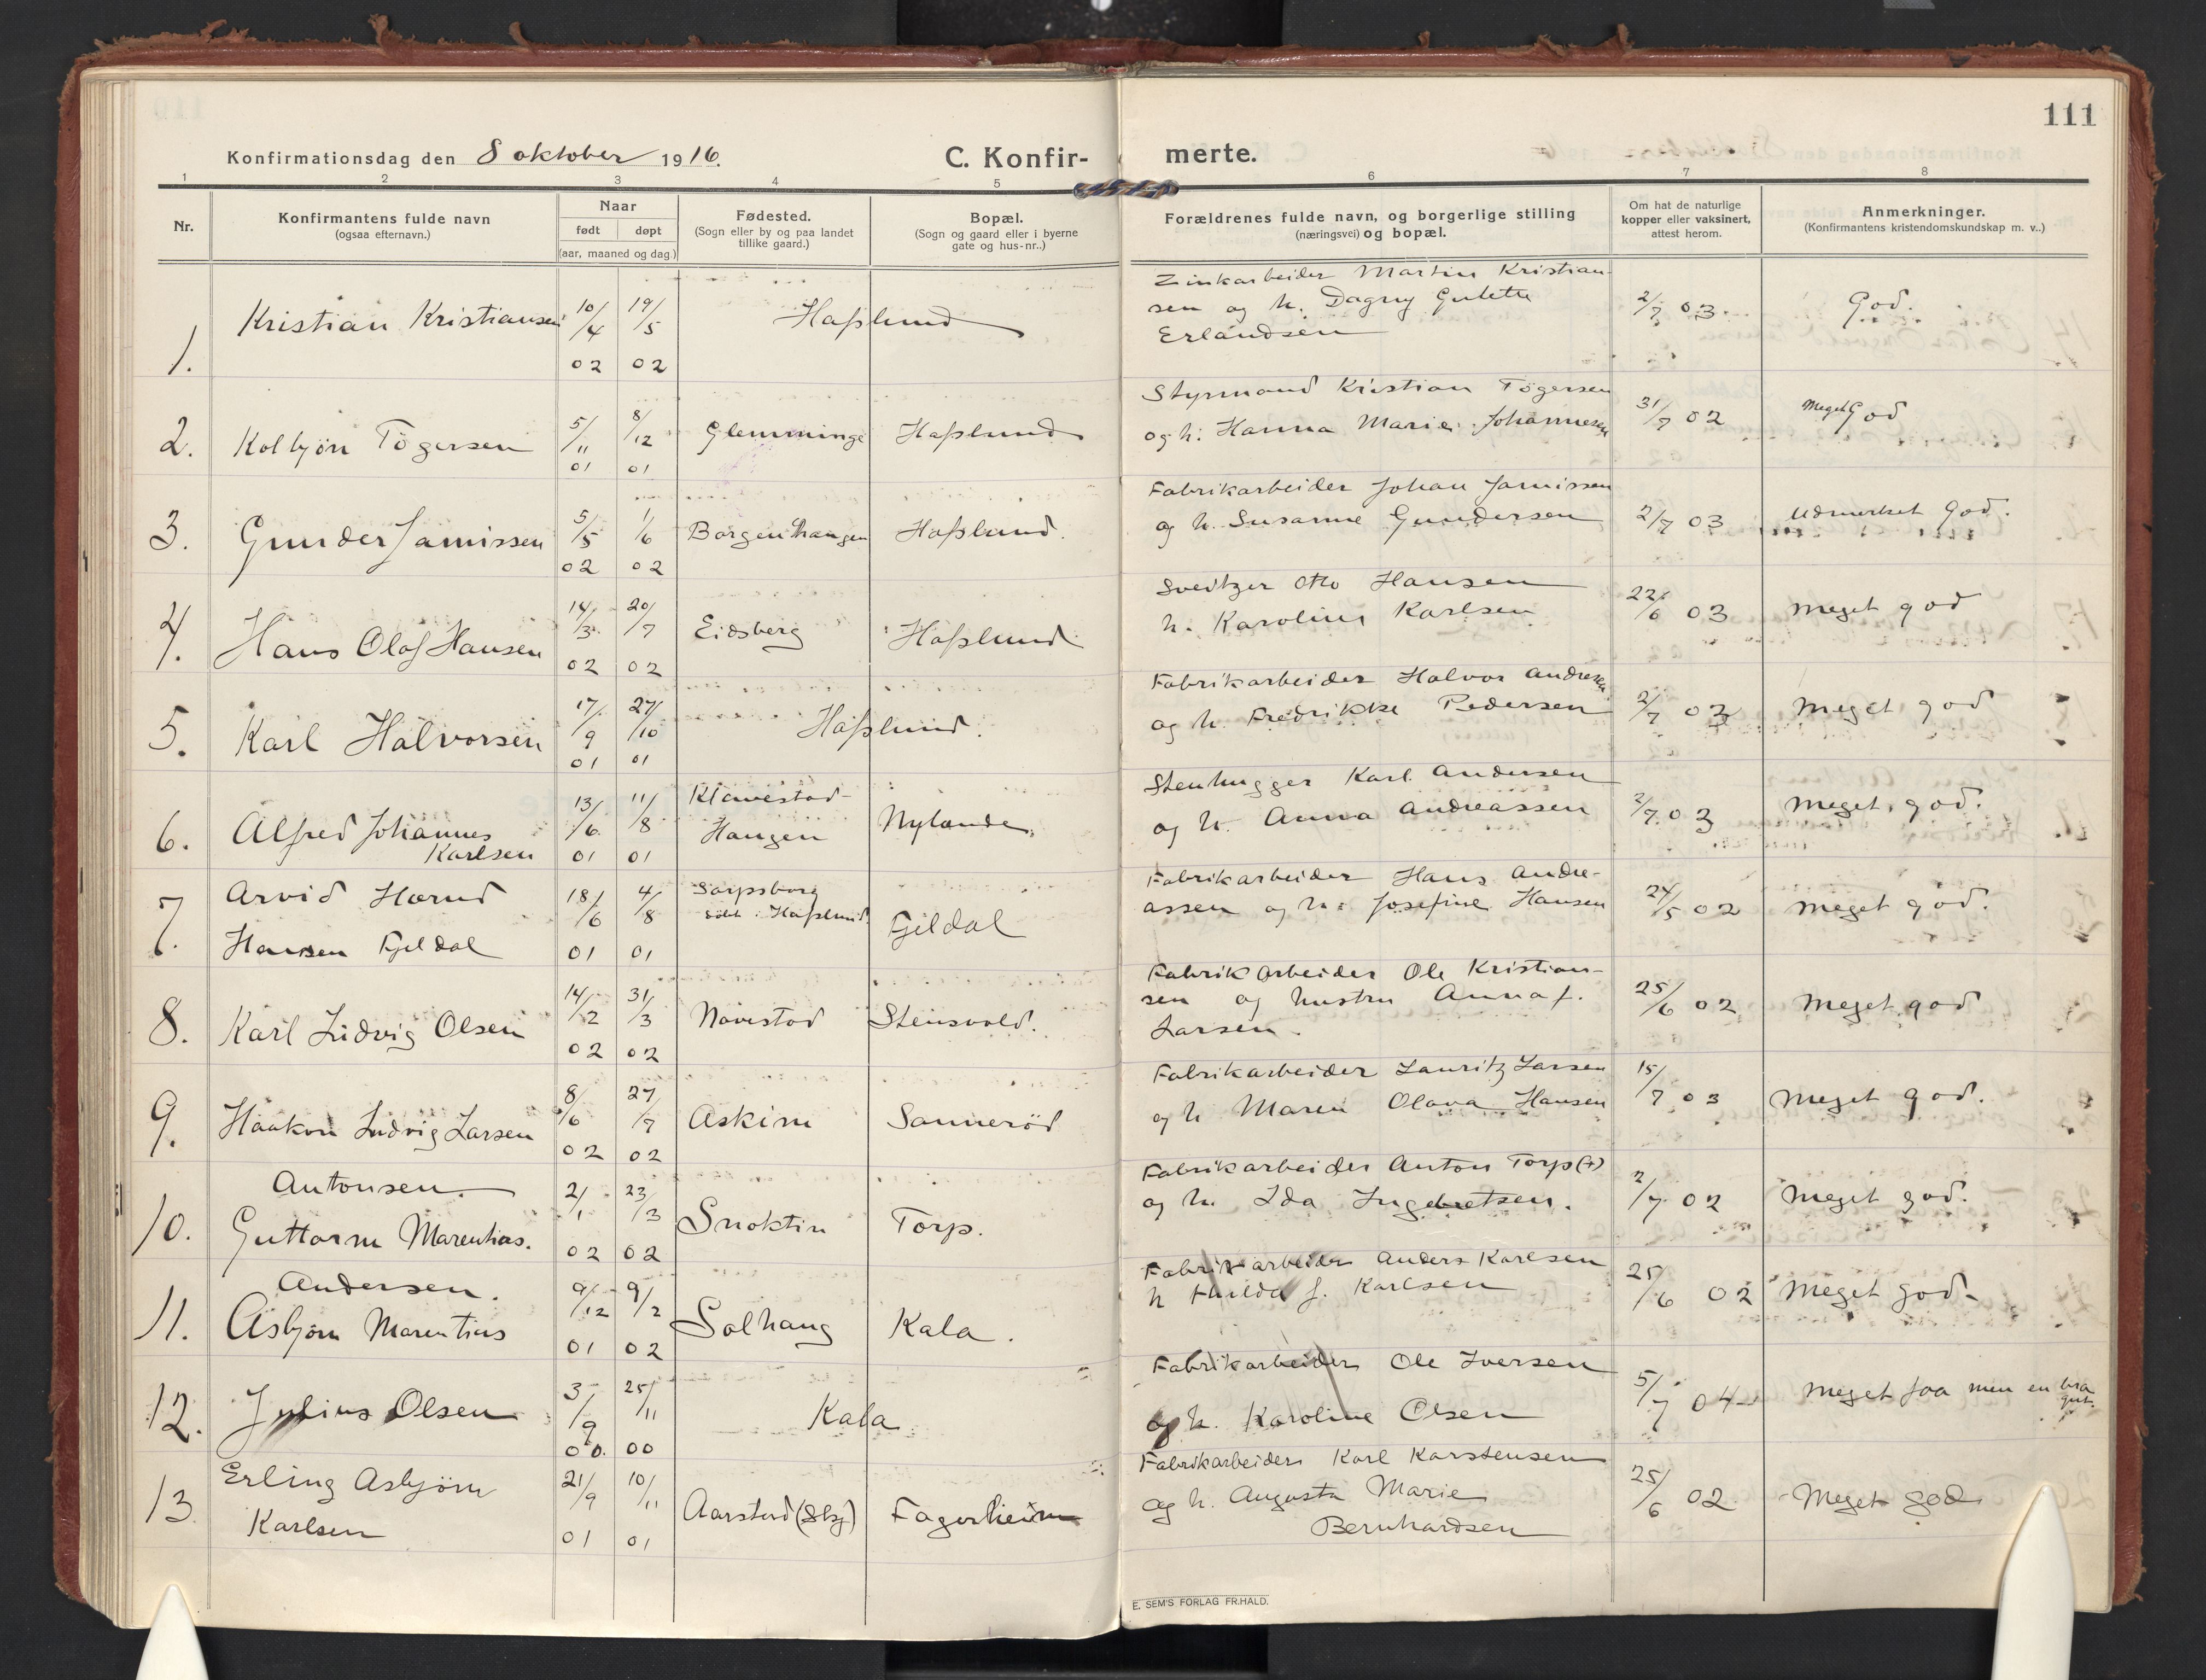 111
Konfirmationsdag den 8 oktober 1916.
C. Konfir-
merte.
1 2 3 4 5 6 7 8
Nr.
Konfirmantens fulde navn
(ogsaa efternavn.)
Naar
født døpt
(aar, maaned og dag.)
Fødested.
(Sogn eller by og paa landet
tillike gaard.)
Bopæl.
(Sogn og gaard eller i byerne
gate og hus-nr..)
Forældrenes fulde navn, og borgerlige stilling
(næringsvei) og bopæl.
Om hat de naturlige
kopper eller vaksinert,
attest herom.
Anmerkninger.
(Konfirmantens kristendomskundskap m. v..)
1.
Kristian Kristiansen
10/4 02
19/5 02
Hafslund
Zinkarbeider Martin Kristian-
sen og h. Dagny Gulette
Erlandsen
2/7 03.
God.
2.
Kolbjörn Tögersen
5/11 01
8/12 01
Glemminge
Hafslund
Styrmand Kristian Tögersen
og h. Hanna Marie Johannesen
31/7 02
Meget God
3.
Gunder Jamissen
5/5 02
1/6 02
Borgenhaugen
Hafslund.
Fabrikarbeider Johan Jamissen
og h. Susanne Gundersen
2/7 03
Udmerket God.
4.
Hans Olaf Hansen
14/3 02
20/7 02
Eidsberg
Hafslund
Sveitzer Otto Hansen
h. Karoline Karlsen
22/6 03
Meget god
5.
Karl Halvorsen
17/9 01
27/10 01
Hafslund.
Fabrikarbeider Halvor Andresen
og h. Fredrikke Pedersen
2/7 02
Meget god
6.
Alfred Johannes
Karlsen
13/6 01
11/8 01
Klavestad-
Haugen
Nylande
Stenhugger Karl Andersen
og h. Anna Andreassen
2/7 03
Meget god.
7.
Arvid Harund
Hansen Fjeldal
18/6 01
4/8 01
Sarpsborg
döbt i Hafslund
Fjeldal
Fabrikarbeider Hans Andre-
assen og h. Josefine Hansen
24/5 02
Meget god.
8.
Karl Ludvig Olsen
14/2 02
31/3 02
Navestad
Stensvold.
Fabrikarbeider Ole Kristian-
sen og hustru Anna f.
Larsen.
25/6 02
Meget god
9.
Haakon Ludvig Larsen
8/6 02
27/7 02
Askim
Sannerød
Fabrikarbeider Lauritz Larsen
og h Maren Olava Hansen
15/7 03
Meget god.
10.
Antonsen.
Guttorm Marentius.
2/1 02
23/3 02
Snoktin
Torp.
Fabrikarbeider Anton Torp (+)
og h. Ida Ingebretsen.
2/7 02
Meget god.
11.
Andersen.
Asbjörn Marentius
9/12 01
9/2 02
Solhaug
Kala.
Fabrikarbeider Anders Karlsen
h Thilda J. Karlsen
25/6 02
Meget god-
12.
Julius Olsen
3/9 00.
25/11 00
Kala
Fabrikarbeider Ole Iversen
og h. Karoline Olsen
5/7 04
Meget faa men en bra
gut.
13
Erling Asbjörn
Karlsen
21/9 01
10/11 01
Aarstad (Skj)
Fagerheim
Fabrikarbeider Karl Karstensen
og h. Augusta Marie
Bernhardsen
25/6 02
Meget god
E. SEM'S FORLAG FR.HALD.